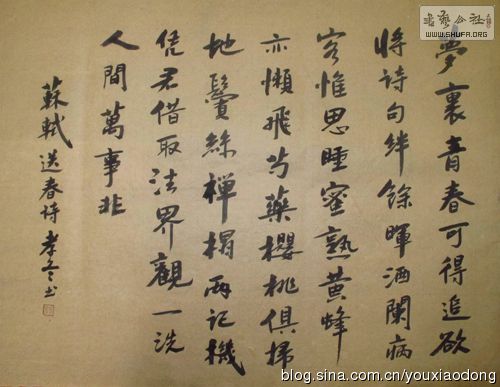 书艺公社
WWW.SHUFA.ORG
夢裏青春可得追欲
將詩句絆餘暉酒闌病
客惟思睡蜜熟黄蜂
亦懶飛芍藥櫻桃俱掃
地鬢絲禪榻兩忘機
凭君借取法界觀一洗
人間萬事非
蘇軾送春詩 孝冬书
blog.sina.com.cn/youxiaodong